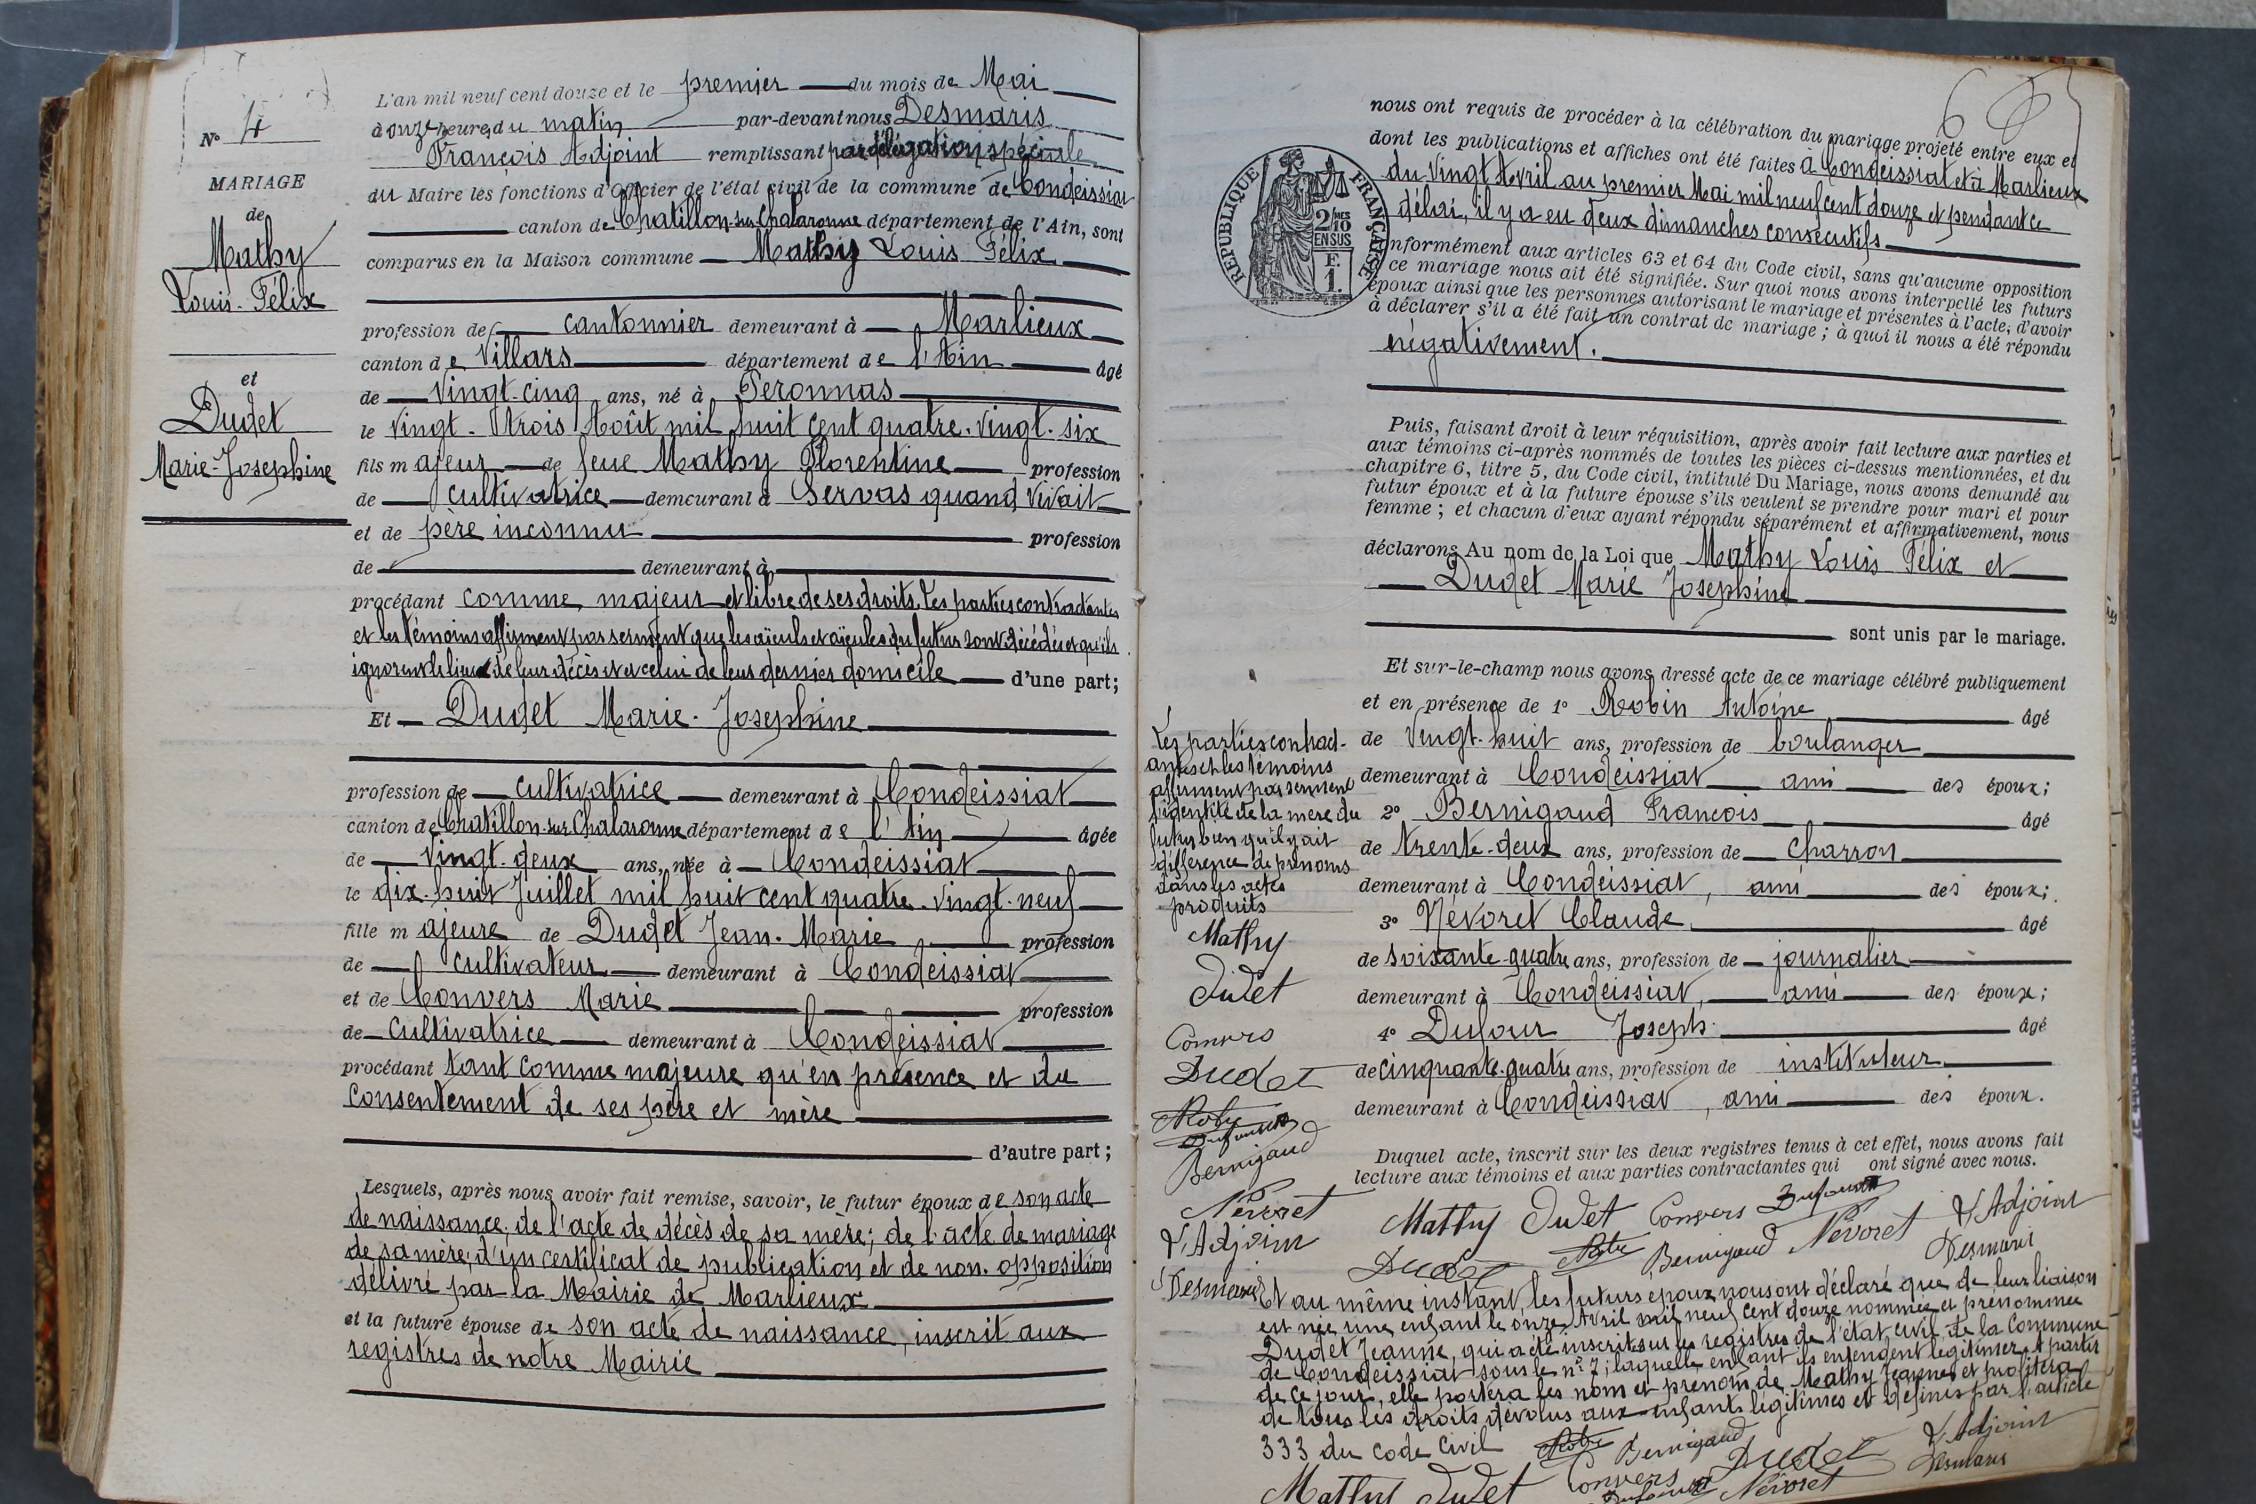 N° 4
MARIAGE
de
Mathy
Louis-Félix
et
Dudet
Marie-Josephine
L'an mil neuf cent douze et le premier du mois de Mai
à onze heures du matin par-devant nous Desmaris
François Adjoint remplissant par délégation spéciale
du Maire les fonctions d'Officier de l'état civil de la commune de Condeissiat
canton de Chatillon-sur-Chalaronne département de l'Ain, sont
comparus en la Maison commune Mathy Louis Félix
profession de cantonnier demeurant à Marlieux
canton de Villars département de l'Ain âgé
de vingt-cinq ans, né à Peronnas
le vingt-trois Août mil huit cent quatre-vingt-six
fils majeur de feue Mathy Florentine profession
de cultivatrice demeurant à Servas quand vivait
et de père inconnu profession
de demeurant à
procédant comme majeur et libre de ses droits. Les parties contractantes
et les témoins affirment par serment que les aïeuls et aïeules du futur sont décédés et qu'ils
ignorent le lieu de leur décès et celui de leur dernier domicile d'une part;
Et Dudet Marie-Josephine
profession de cultivatrice demeurant à Condeissiat
canton de Chatillon-sur-Chalaronne département de l'Ain âgée
de vingt-deux ans, née à Condeissiat
le dix-huit Juillet mil huit cent quatre-vingt-neuf
fille majeure de Dudet Jean-Marie profession
de cultivateur demeurant à Condeissiat
et de Convers Marie profession
de cultivatrice demeurant à Condeissiat
procédant tant comme majeure qu'en présence et du
consentement de ses père et mère
d'autre part;
Lesquels, après nous avoir fait remise, savoir, le futur époux de son acte
de naissance; de l'acte de décès de sa mère; de l'acte de mariage
de sa mère; d'un certificat de publication et de non-opposition
délivré par la Mairie de Marlieux
et la future épouse de son acte de naissance, inscrit aux
registres de notre Mairie
nous ont requis de procéder à la célébration du mariage projeté entre eux et
dont les publications et affiches ont été faites à Condeissiat et à Marlieux
du vingt Avril au premier Mai mil neuf cent douze et pendant ce
délai, il y a eu deux dimanches consécutifs
RÉPUBLIQUE FRANÇAISE
2/10 MES
EN SUS
F.
1.
nformément aux articles 63 et 64 du Code civil, sans qu'aucune opposition
ce mariage nous ait été signifiée. Sur quoi nous avons interpellé les futurs
époux ainsi que les personnes autorisant le mariage et présentes à l'acte, d'avoir
à déclarer s'il a été fait un contrat de mariage; à quoi il nous a été répondu
négativement.
Puis, faisant droit à leur réquisition, après avoir fait lecture aux parties et
aux témoins ci-après nommés de toutes les pièces ci-dessus mentionnées, et du
chapitre 6, titre 5, du Code civil, intitulé Du Mariage, nous avons demandé au
futur époux et à la future épouse s'ils veulent se prendre pour mari et pour
femme; et chacun d'eux ayant répondu séparément et affirmativement, nous
déclarons Au nom de la Loi que Mathy Louis Félix et
Dudet Marie Josephine
sont unis par le mariage.
Et sur-le-champ nous avons dressé acte de ce mariage célébré publiquement
et en présence de 1° Robin Antoine âgé
de vingt-huit ans, profession de boulanger
demeurant à Condeissiat ami des époux;
2° Bernigaud François âgé
de trente-deux ans, profession de charron
demeurant à Condeissiat, ami des époux;
3° Névoret Claude âgé
de soixante-quatre ans, profession de journalier
demeurant à Condeissiat, ami des époux;
4° Dufour Joseph âgé
de cinquante-quatre ans, profession de instituteur
demeurant à Condeissiat, ami des époux.
Duquel acte, inscrit sur les deux registres tenus à cet effet, nous avons fait
lecture aux témoins et aux parties contractantes qui ont signé avec nous.
Mathy Dudet Convers Dufour L'Adjoint
Dudet Robin Bernigaud Névoret Desmaris
Les parties contract-
antes et les témoins
affirment par serment
l'identité de la mère du
futur bien qu'il y ait
différence de prénoms
dans les actes
produits
Mathy
Dudet
Convers
Dudet
Robin
Dufour
Bernigaud
Névoret
L'Adjoint
Desmaris
Et au même instant, les futurs époux nous ont déclaré que de leur liaison
est née une enfant le onze Avril mil neuf cent douze nommée et prénommée
Dudet Jeanne, qui a été inscrite sur les registres de l'état civil de la Commune
de Condeissiat sous le n° 7; laquelle enfant ils entendent légitimer. A partir
de ce jour, elle portera les nom et prénom de Mathy Jeanne et profitera
de tous les droits dévolus aux enfants légitimes et définis par l'article
333 du code civil Robin Bernigaud Dudet L'Adjoint
Mathy Dudet Convers Dufour Névoret Desmaris